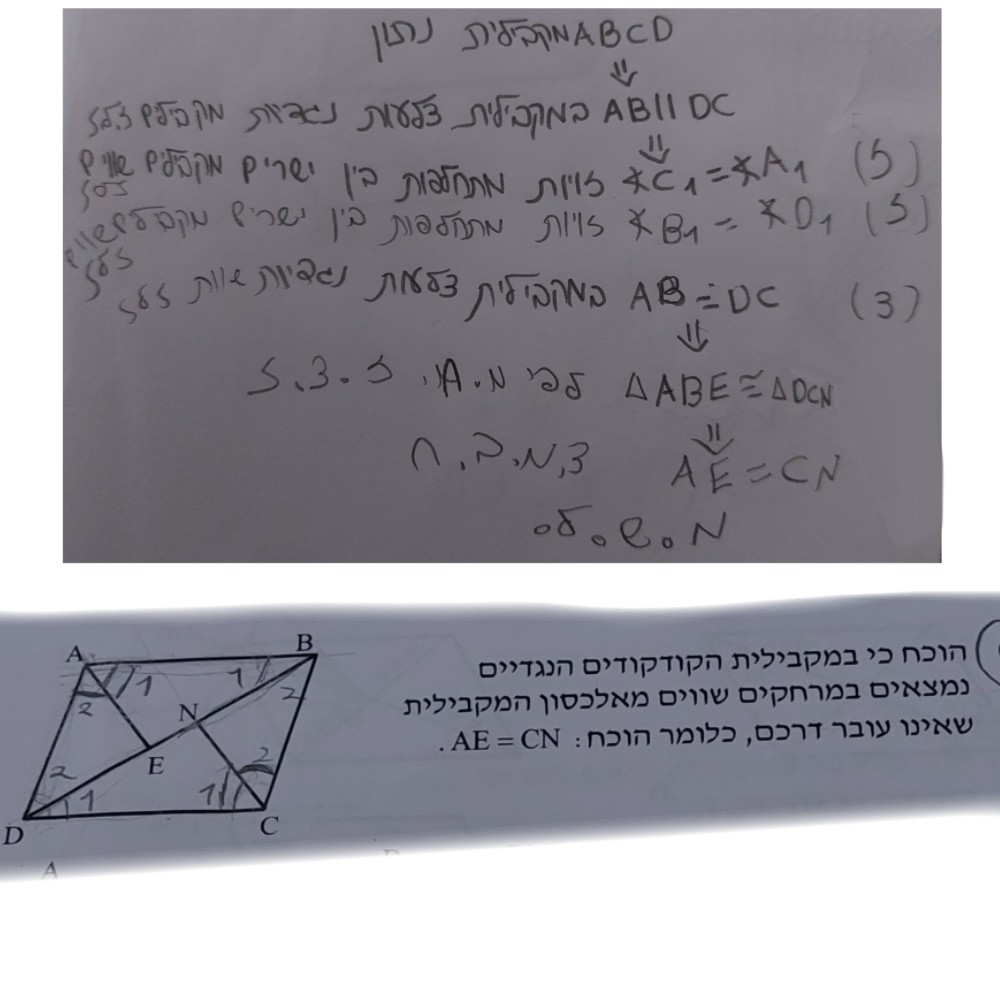 נתון ABCD מקבילית
⇓
AB||DC במקבילית צלעות נגדיות מקבילות זלז
⇓
(ז) ∢C1=∢A1 זויות מתחלפות בין ישרים מקבלים שווים זלז
(ז) ∢B1=∢D1 זויות מתחלפות בין ישרים מקבלים שווים זלז
(צ) AB=DC במקבילית צלעות נגדיות שוות זלז
⇓
△ABE≅△DCN לפי מ.א. ז.צ.ז
⇓
AE=CN צ.מ.ב.ח
מ.ש.ל.
הוכח כי במקבילית הקודקודים הנגדיים
נמצאים במרחקים שווים מאלכסון המקבילית
שאינו עובר דרכם, כלומר הוכח: AE = CN.
A B
1 1
2 2
N
E 2
2
1 1
D C
A